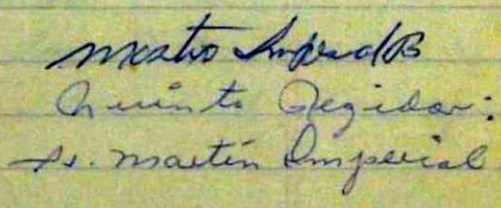 Martin Imperial B
Quinto Regidor:
Sr. Martin Imperial